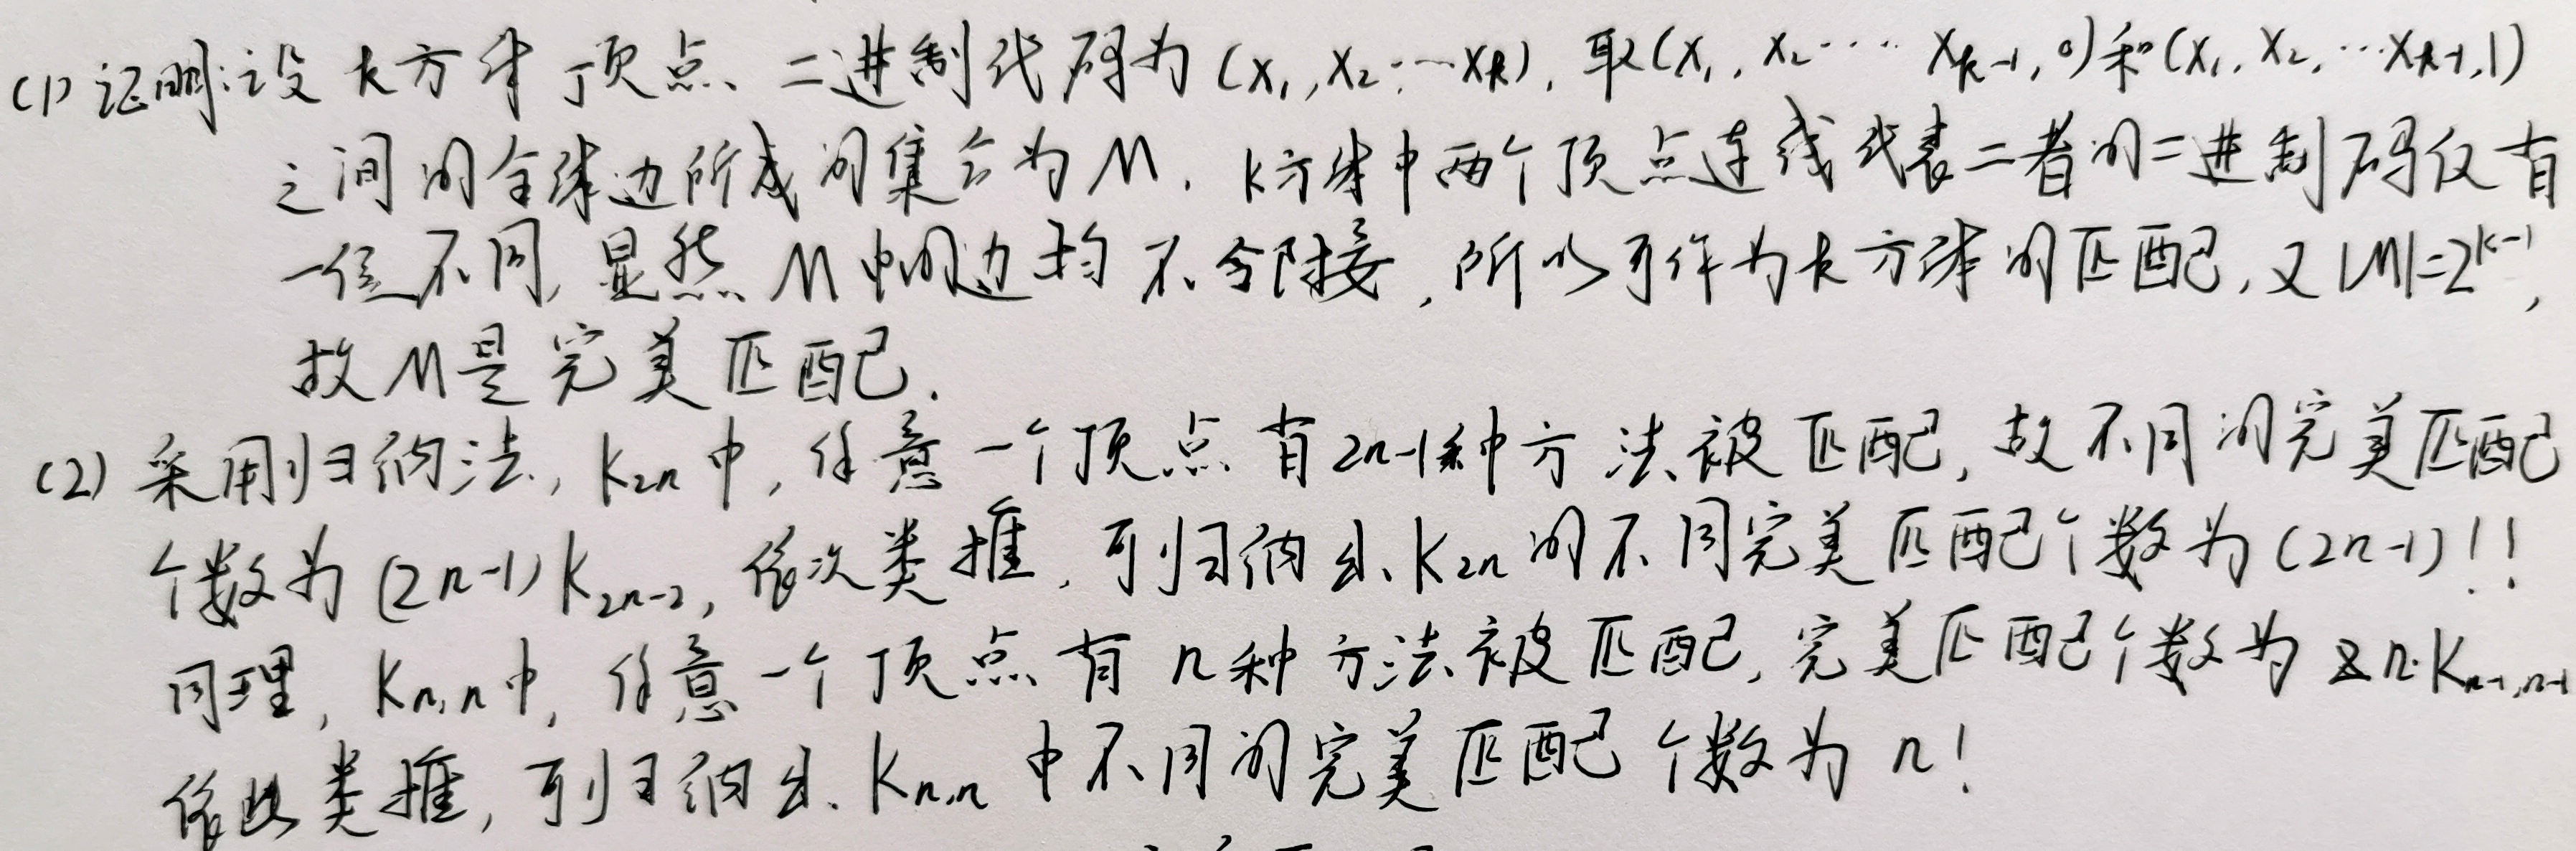 (1) 证明:设 k方体顶点、二进制代码为 (x₁,x₂,…xₖ), 取(x₁,x₂…xₖ₋₁,0)和(x₁,x₂,…xₖ₋₁,1)
之间的全体边所成的集合为M. k方体中两个顶点连线代表二者的二进制码仅有
一位不同, 显然 M中的边均不邻接, 所以可作为k方体的匹配, 又|M|=2ᵏ⁻¹,
故M是完美匹配.
(2) 采用归纳法, K₂ₙ中, 任意一个顶点有2n-1种方法被匹配, 故不同的完美匹配
个数为(2n-1)K₂ₙ₋₂, 依次类推, 可归纳出K₂ₙ的不同完美匹配个数为(2n-1)!!
同理, Kₙ,ₙ中, 任意一个顶点有n种方法被匹配, 完美匹配个数为 n·Kₙ₋₁,ₙ₋₁
依此类推, 可归纳出Kₙ,ₙ中不同的完美匹配个数为n!